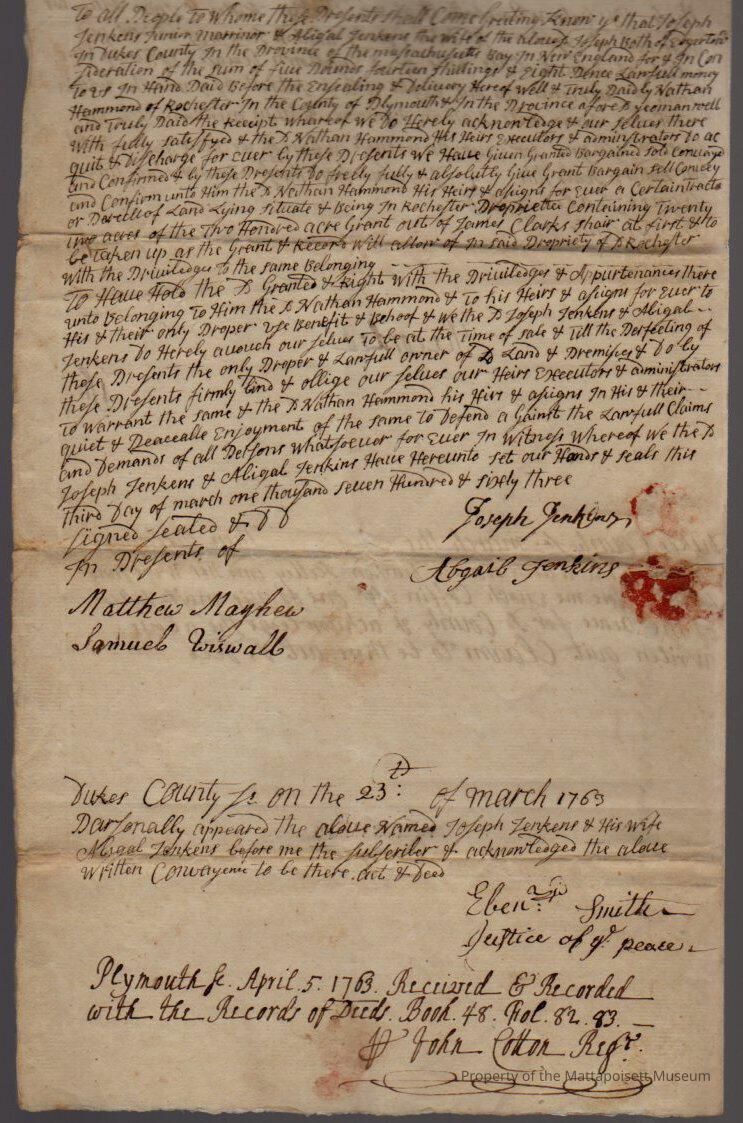 To All People to Whome these Presents shall Come Greeting Know ye that Joseph
Jenkens Junior Marrinor & Abigal Jenkens the wife of the above sd Joseph Both of Edgertown
In Dukes County In the Province of the massachusetts Bay In New England for & In Con
sideration of the sum of five Pounds fourteen shillings & Eight Pence Lawfull money
To us In Hand Paid Before the Ensealing & Delivery Hereof Well & Truly Paid by Nathan
Hammond of Rochester In the County of Plymouth & In the Province afore sd yeoman well
and Truly Paid the Receipt whareof We Do Hereby acknowledge & our selves there
With fully satisfyed & the sd Nathan Hammond His Heirs Executors & administrators Do ac
quit & Discharge for ever by these Presents We Have Given Granted Bargained sold Convayed
and Confirmed & by these Presents Do freely fully & absolutly Give Grant Bargain sell Convey
and Confirm unto Him the sd Nathan Hammond His Heirs & asigns for Ever a Certain tract
or Parcell of Land Lying situate & Being In Rochester Proprietee Containing Twenty
two acres of the Two Hondred acre Grant out of James Clarks shair at first & to
be Taken up as the Grant & Record Will allow of In said Propriety of sd Rochester
With the Priviledges to the same Belonging
To Have Hold the sd Granted & Right With the Priviledges & Appurtenances there
unto Belonging To Him the sd Nathan Hammond & to his Heirs & asigns for Ever to
His & their only Proper Use Benifit & Behoof & We the sd Joseph Jenkens & Abigal
Jenkens Do Hereby avouch our selves To be at the Time of sale & Till the Perfecting of
these Presents the only Proper & Lawfull owner of sd Land & Premises & Do by
these Presents firmly bind & oblige our selves our Heirs Executors & administrators
To Warrant the same & the sd Nathan Hammond his Heirs & asigns In His & their
quiet & Peaceable Enjoyment of the same to Defend against the Lawfull Claims
and Demands of all Persons Whatsoever for Ever In Witness Whereof We the sd
Joseph Jenkens & Abigal Jenkins Have Hereunto set our Hands & seals this
Third Day of march one thousand seven Hundred & sixty three
signed sealed & DD
In Presents of
Joseph Jenkins
Abgail Jenkins
Matthew Mayhew
Samuel Wiswall
Dukes County ss on the 23d: of march 1763
Parsonally appeared the above Named Joseph Jenkens & His Wife
Abigal Jenkens before me the subscriber & acknowledged the above
Written Convayence to be there act & Deed
Ebenr. Smith
Justice of ye peace
Plymouth ss. April. 5. 1763. Received & Recorded
with the Records of Deeds. Book. 48. Fol. 82. 83.
pr John Cotton Regr.
Property of the Mattapoisett Museum